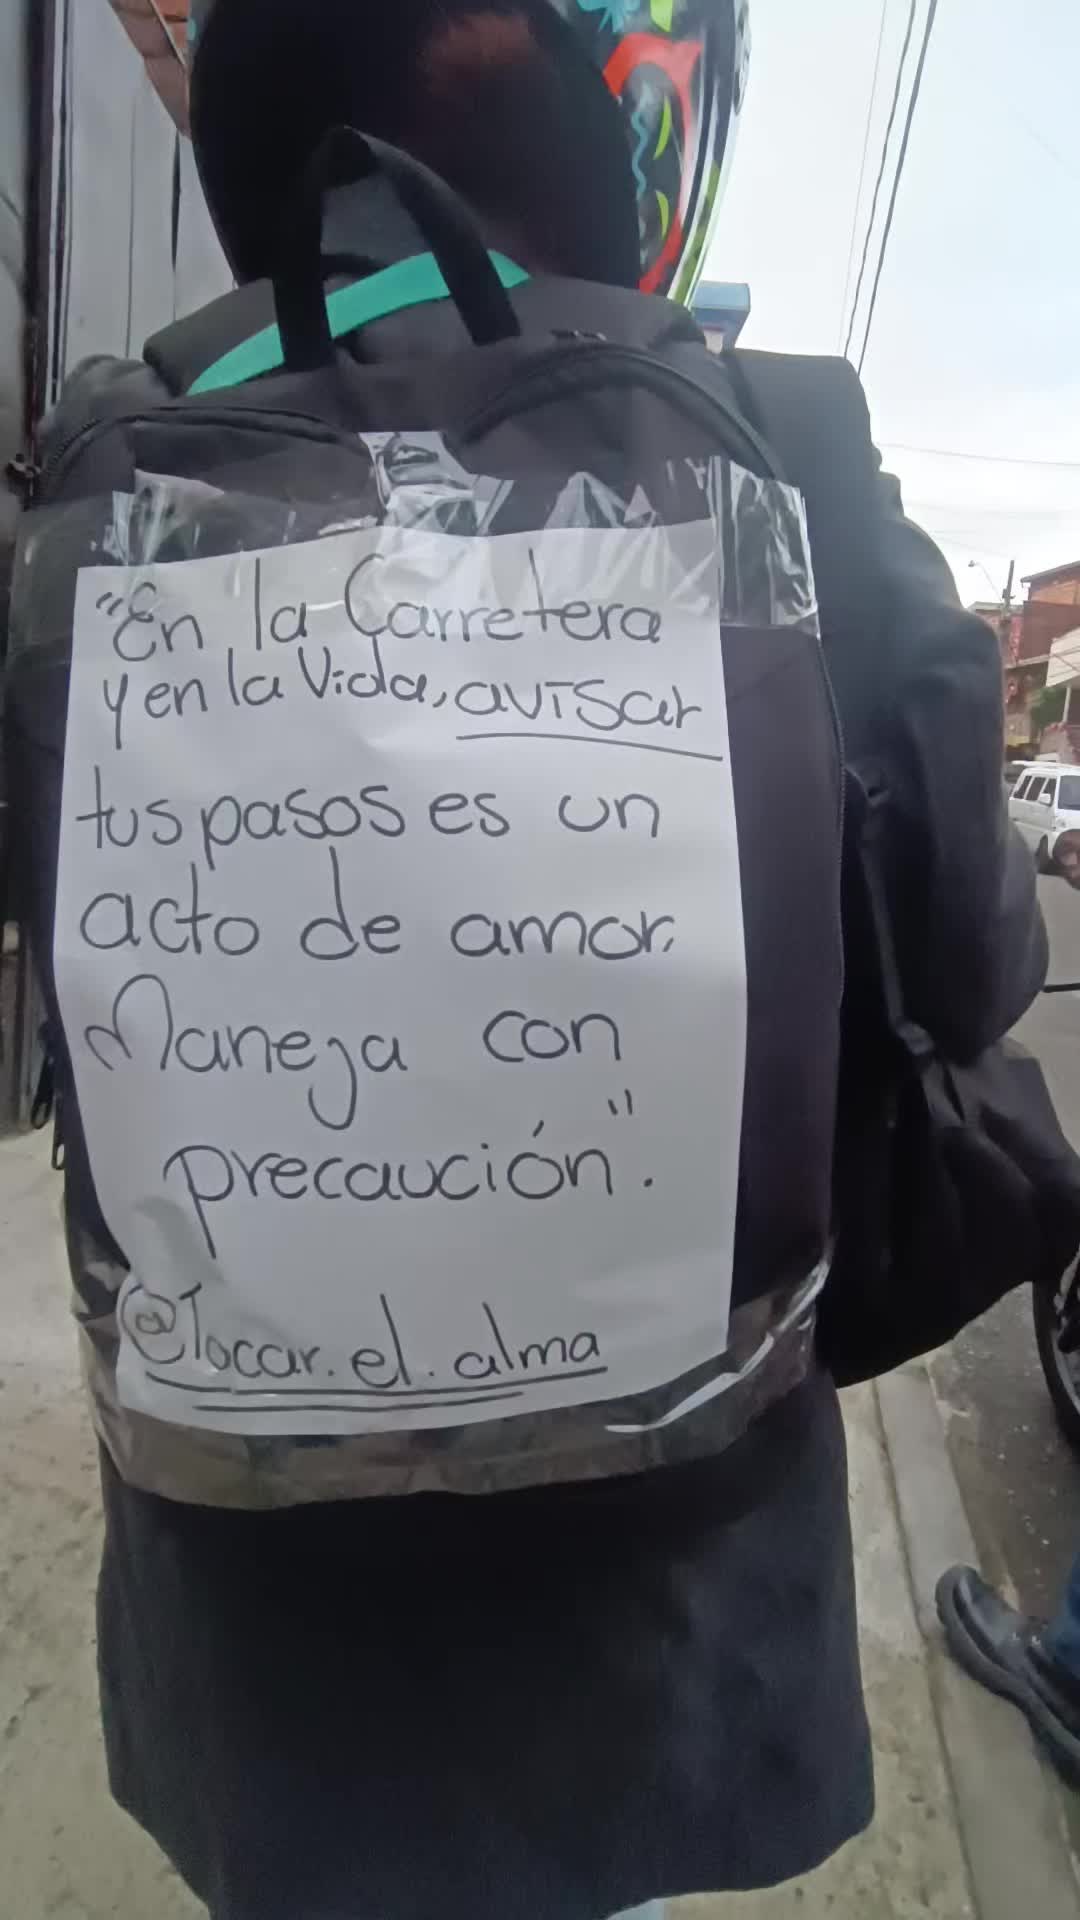 "En la Carretera
y en la Vida, avisar
tus pasos es un
acto de amor.
Maneja con
precaución".
@Tocar.el.alma